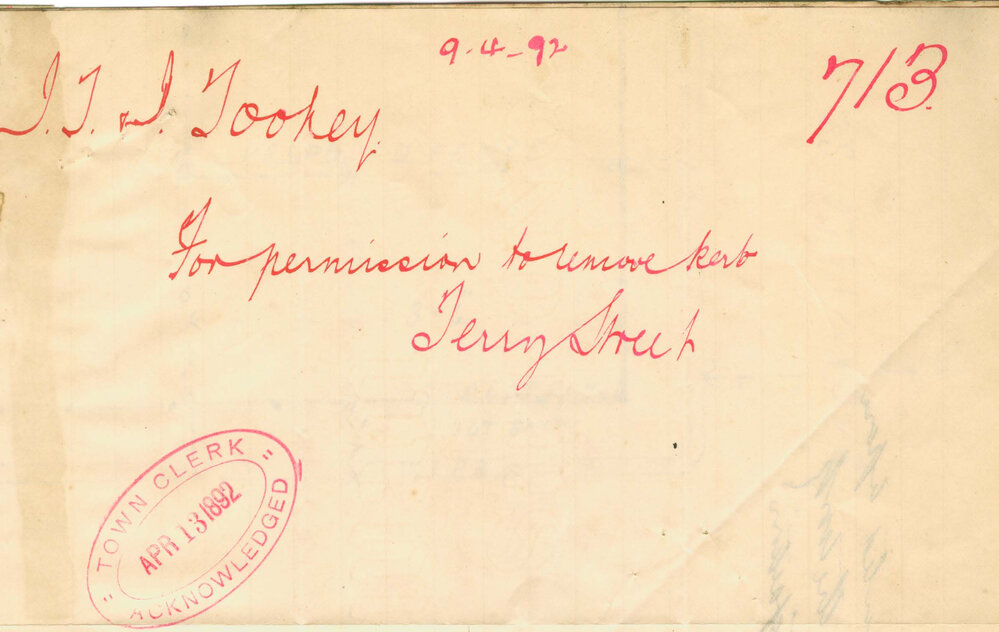 9-4-92
713.
J.T. & J. Toohey.
For permission to remove kerb
Terry Street
" TOWN CLERK "
APR 13 1892
ACKNOWLEDGED